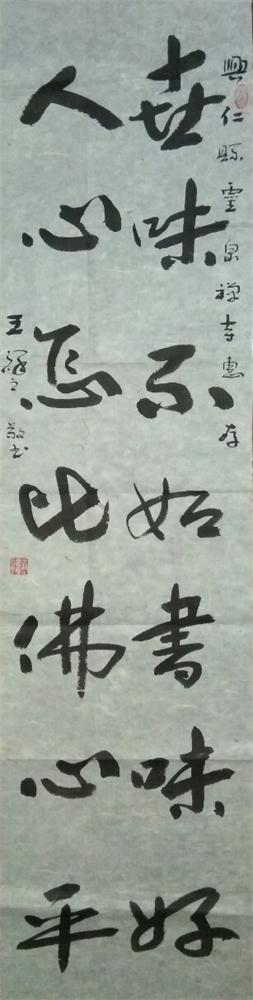 興仁縣靈泉禪寺惠存
世味不如書味好
人心怎比佛心平
王之敬书